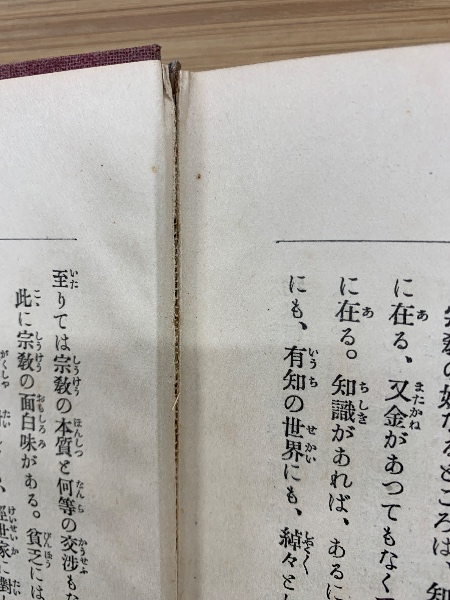 宗教の妙なるところは、知
に在る、又金があつてもなく
に在る。知識があれば、あるに
にも、有知の世界にも、綽々と
至りては宗教の本質と何等の交渉もな
此に宗教の面白味がある。貧乏には
経世家に對